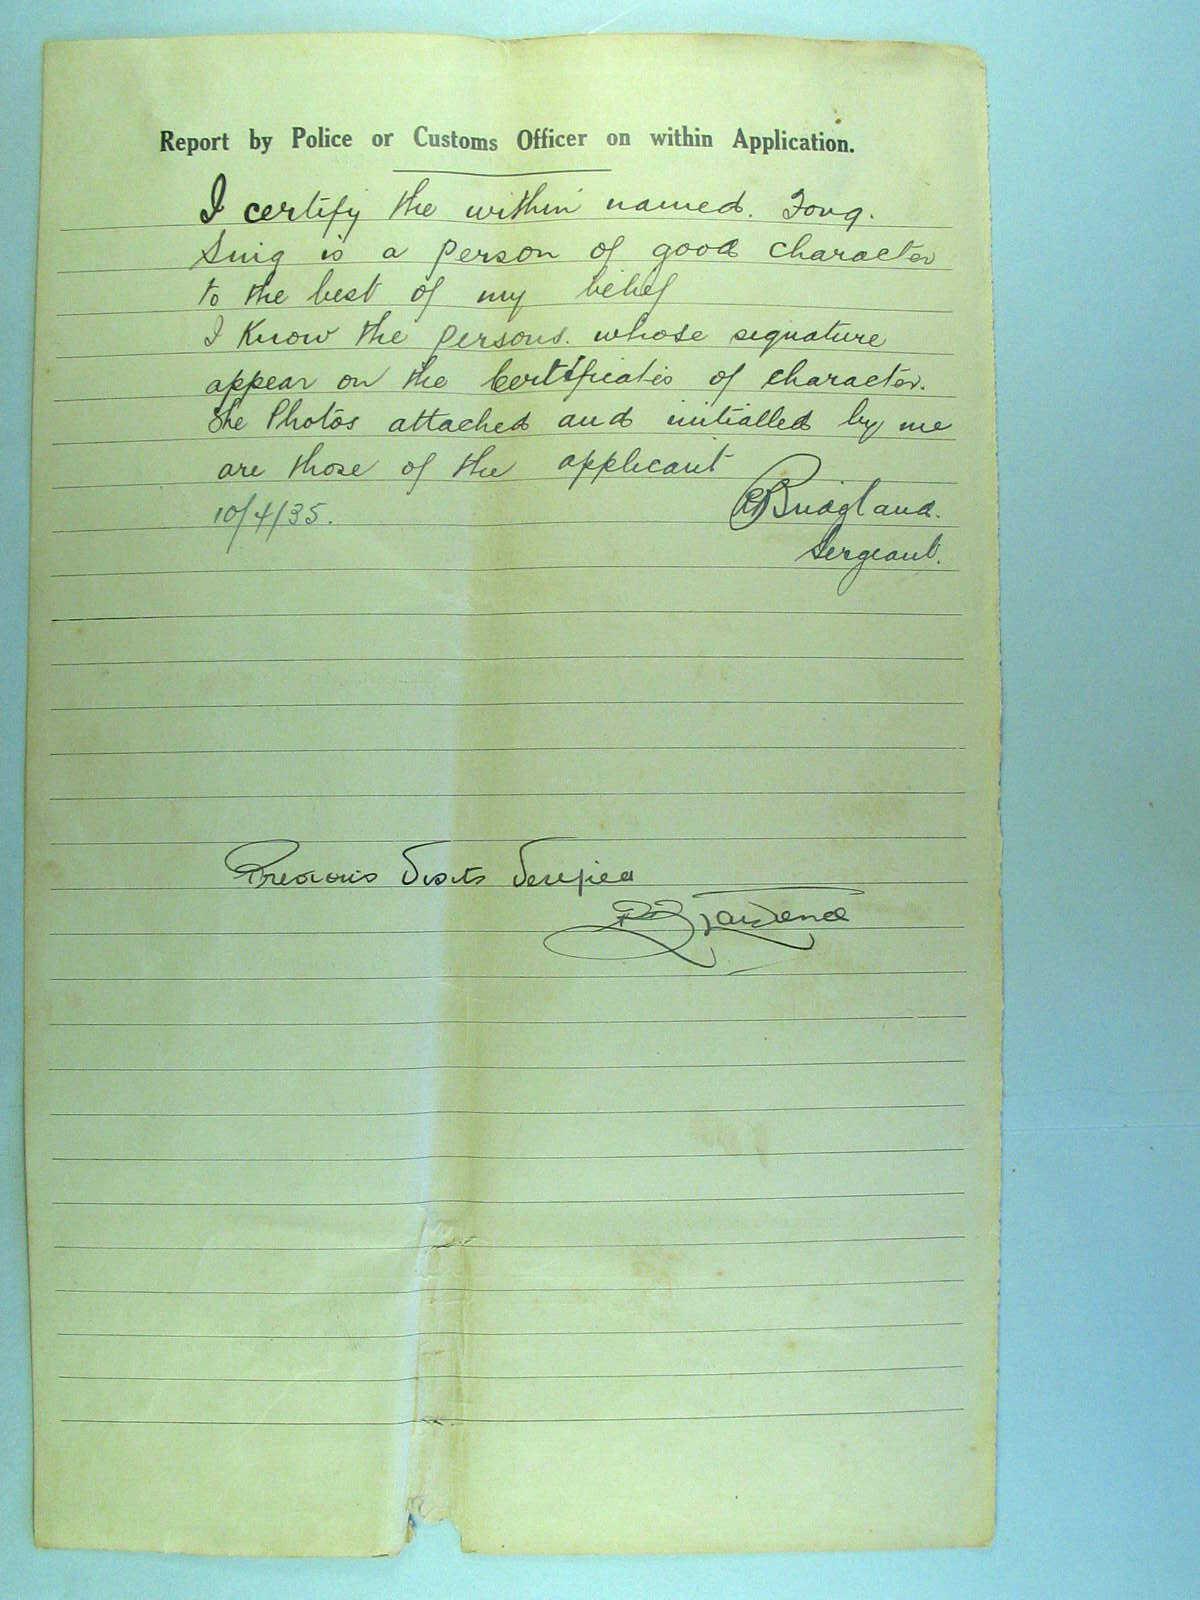 Report by Police or Customs Officer on within Application.
I certify the within named. Fong.
Suig is a person of good character
to the best of my belief
I Know the persons. whose signature
appear on the Certificates of character.
The Photos attached and initialled by me
are those of the applicant
10/4/35.
Bridgland.
Sergeant.
Previous Visits Verified